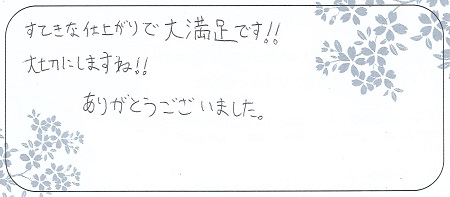 すてきな仕上がりで大満足です!!
大切にしますね!!
ありがとうございました。